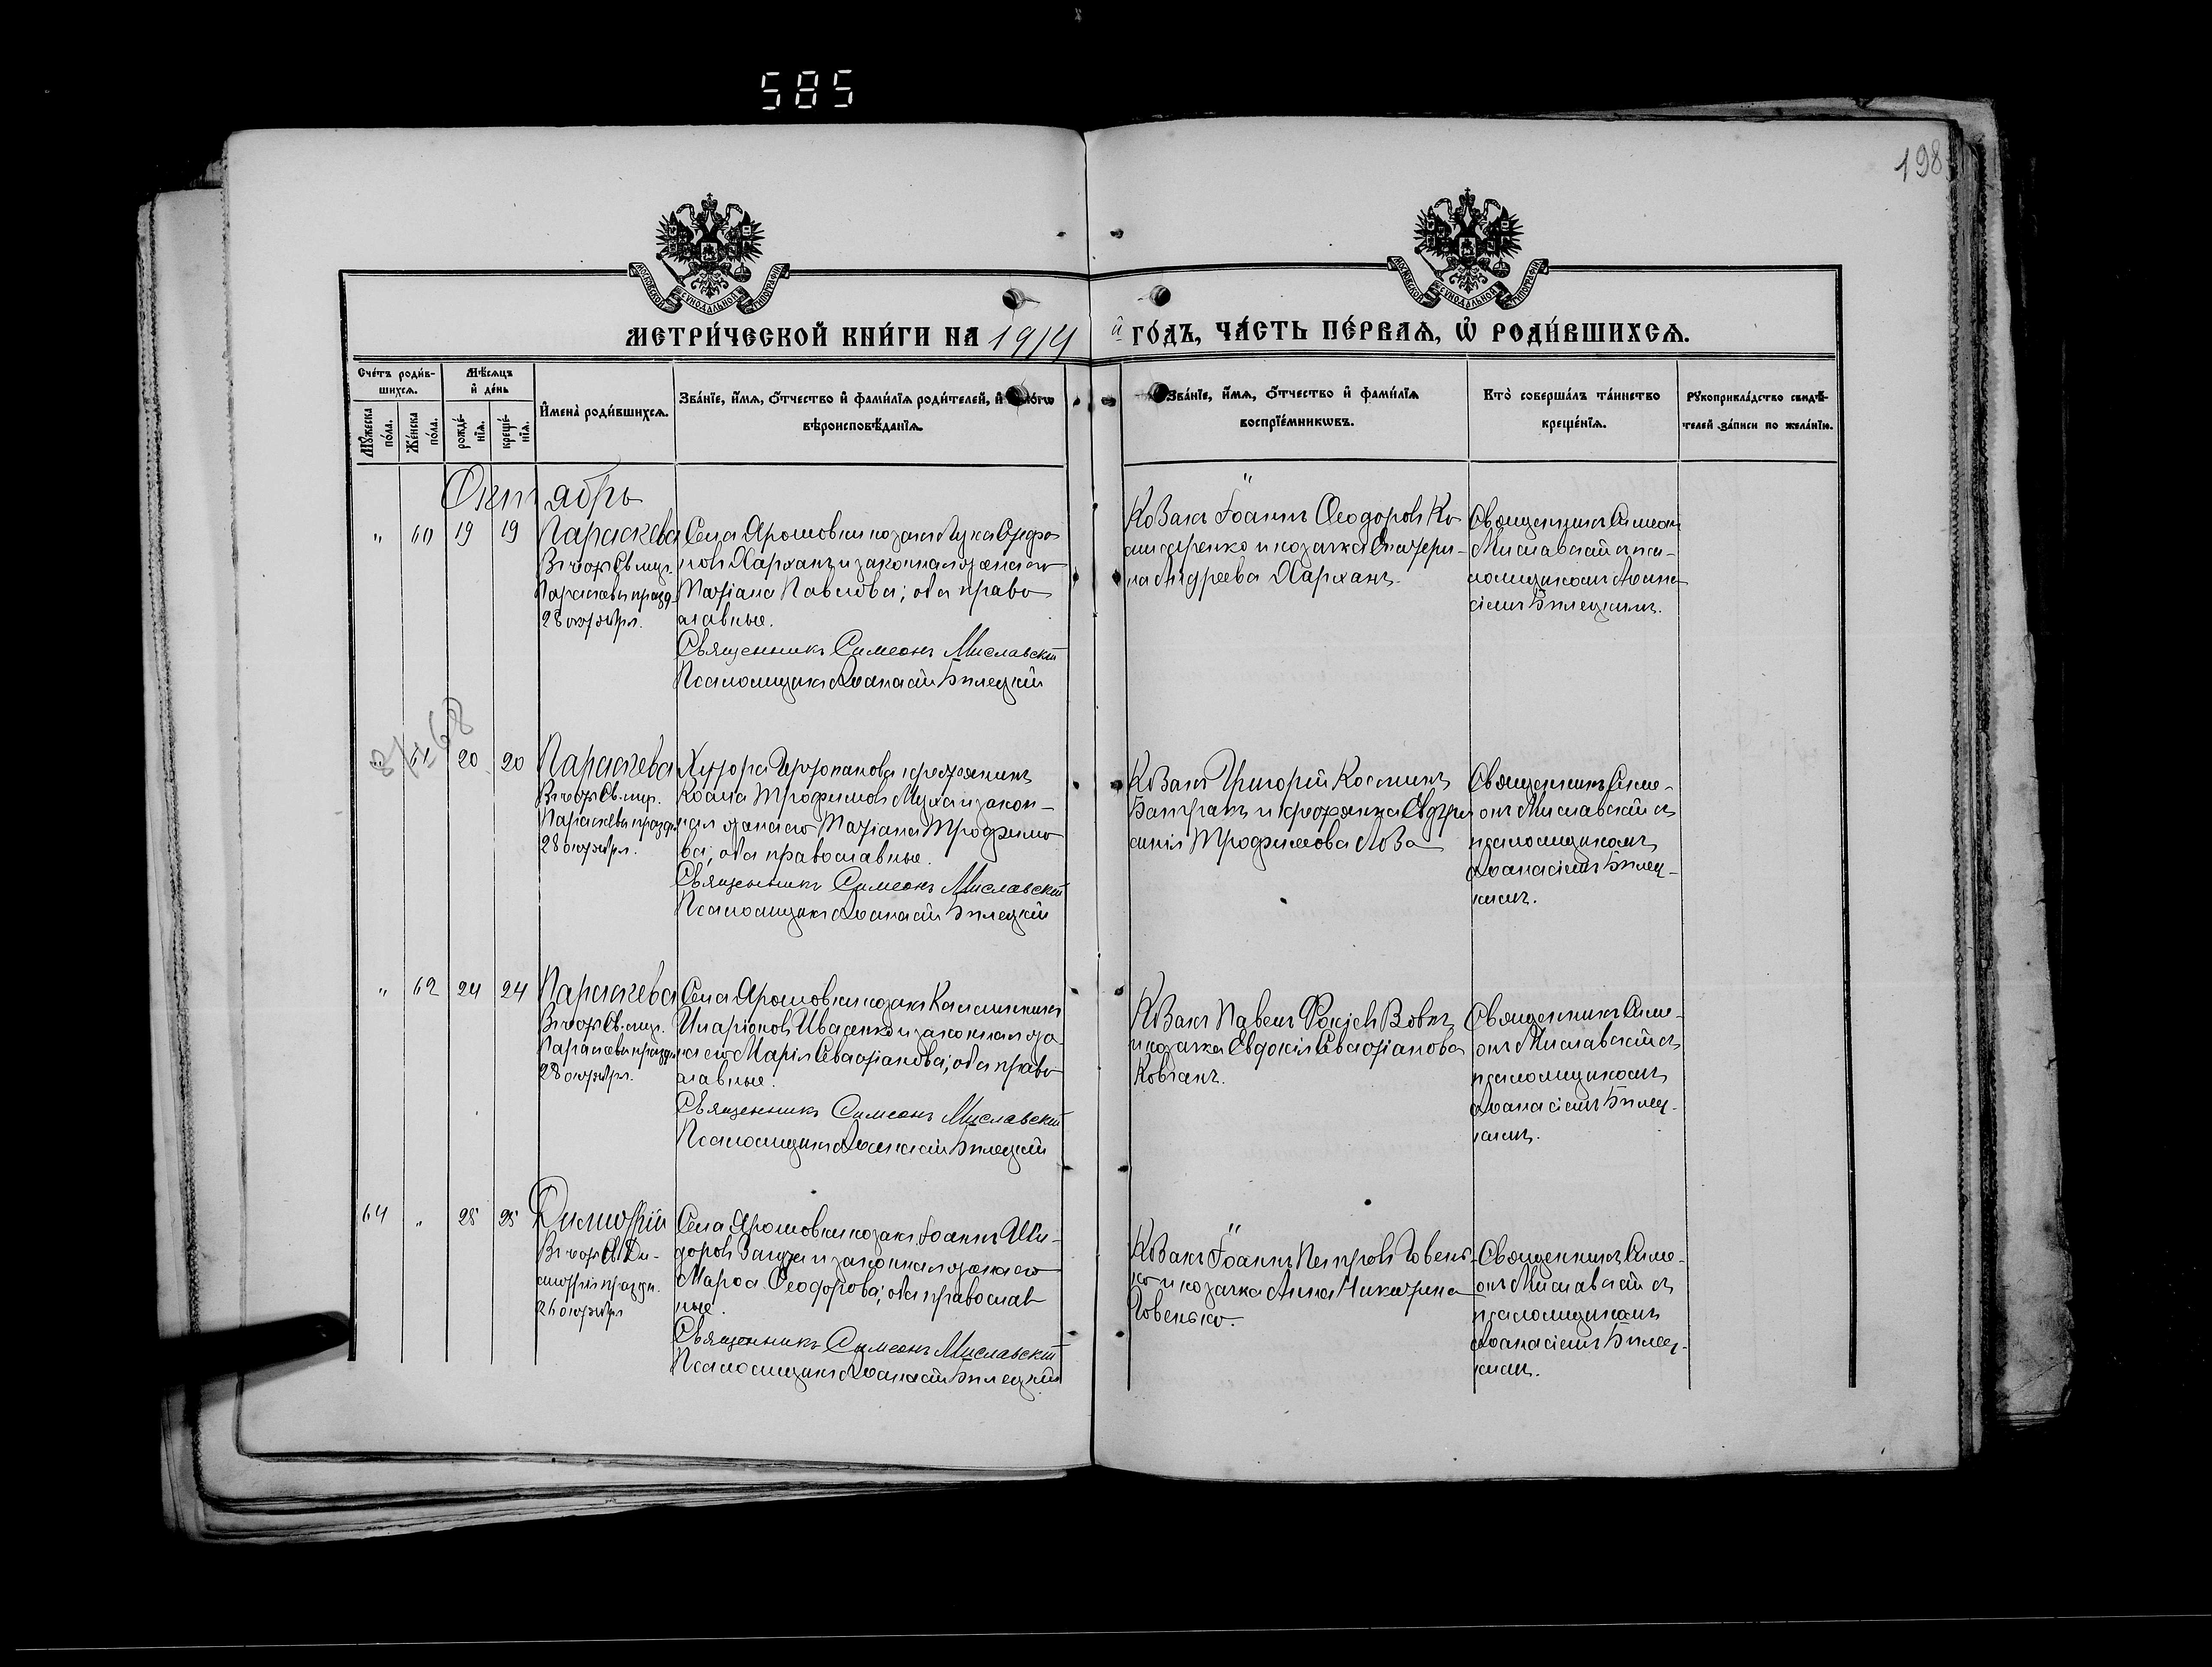 585
198
МОСКОВСКОЙ СѴНОДАЛЬНОЙ ТИПОГРАФІИ
МОСКОВСКОЙ СѴНОДАЛЬНОЙ ТИПОГРАФІИ
МЕТРИ́ЧЕСКОЙ КНИ́ГИ НА 1914 й ГО́ДЪ, ЧА́СТЬ ПЕ́РВАѦ, Ѡ҆ РОДИ́ВШИХСѦ.
Сче́тъ роди́в-
шихсѧ.
Мꙋ́жеска по́ла.
Же́нска по́ла.
Мѣ́сѧцъ
и҆ де́нь
рожде́нїѧ.
креще́нїѧ.
И҆мена̀ роди́вшихсѧ.
Зва́нїе, и҆́мѧ, ѻ҆́тчество и҆ фами́лїѧ роди́телей, и҆
вѣроисповѣ́данїѧ.
Зва́нїе, и҆́мѧ, ѻ҆́тчество и҆ фами́лїѧ
воспрїе́мникѡвъ.
Кто̀ соверша́лъ та́инство
креще́нїѧ.
Рꙋкоприкла́дство свидѣ́-
телей за́писи по жела́нїю.
Октябрь
" 60 19 19
Параскева
Въ честь Св. муч.
Параскевы празд.
28 октября.
Села Ярошовки козакъ Лука
Харханъ и законная жена его
Татіана Павлова; оба право
славные.
Священникъ Симеонъ Миславскій
Псаломщикъ Аѳанасій Билецкій
Козакъ Іоаннъ Ѳеодоровъ Ко
и козачка Екатери-
на Андреева Харханъ.
Священникъ Симеон
Миславскій съ пса-
ломщикомъ Аѳана
сіемъ Билецкимъ.
61 20 20
Параскева
Въ честь Св. муч.
Параскевы праздн.
28 октября.
Хутора крестьянинъ
Косма Трофимовъ Муха и закон-
ная жена его Татіана Трофимо
ва; оба православные.
Священникъ Симеонъ Миславскій
Псаломщикъ Аѳанасій Билецкій
Козакъ Григорій Косминъ
и крестьянка
Трофимова Лоза
Священникъ Симе-
онъ Миславскій съ
псаломщикомъ
Аѳанасіемъ Билец-
кимъ.
" 62 24 24
Параскева
Въ честь Св. муч.
Параскевы праздн.
28 октября.
Села Ярошовки козакъ Каллиникъ
Иларіоновъ Иваненко и законная же
на его Марія Севастіанова; оба право
славные.
Священникъ Симеонъ Миславскій
Псаломщикъ Аѳанасій Билецкій
Козакъ Павелъ Вовкъ
и козачка Евдокія Севастіанова
Ковганъ.
Священникъ Симе-
онъ Миславскій съ
псаломщикомъ
Аѳанасіемъ Билец-
кимъ.
64 " 25 25
Димитрій
Въ честь Св. Ди-
митрія праздн.
26 октября
Села Ярошовки козакъ Іоаннъ Иси-
доровъ и законная жена его
Марѳа Ѳеодорова; оба православ
ные.
Священникъ Симеонъ Миславскій
Псаломщикъ Аѳанасій Билецкій
Козакъ Іоаннъ Петровъ Говень-
ко и козачка Анна Никитина
Говенько.
Священникъ Симе-
онъ Миславскій съ
псаломщикомъ
Аѳанасіемъ Билец-
кимъ.